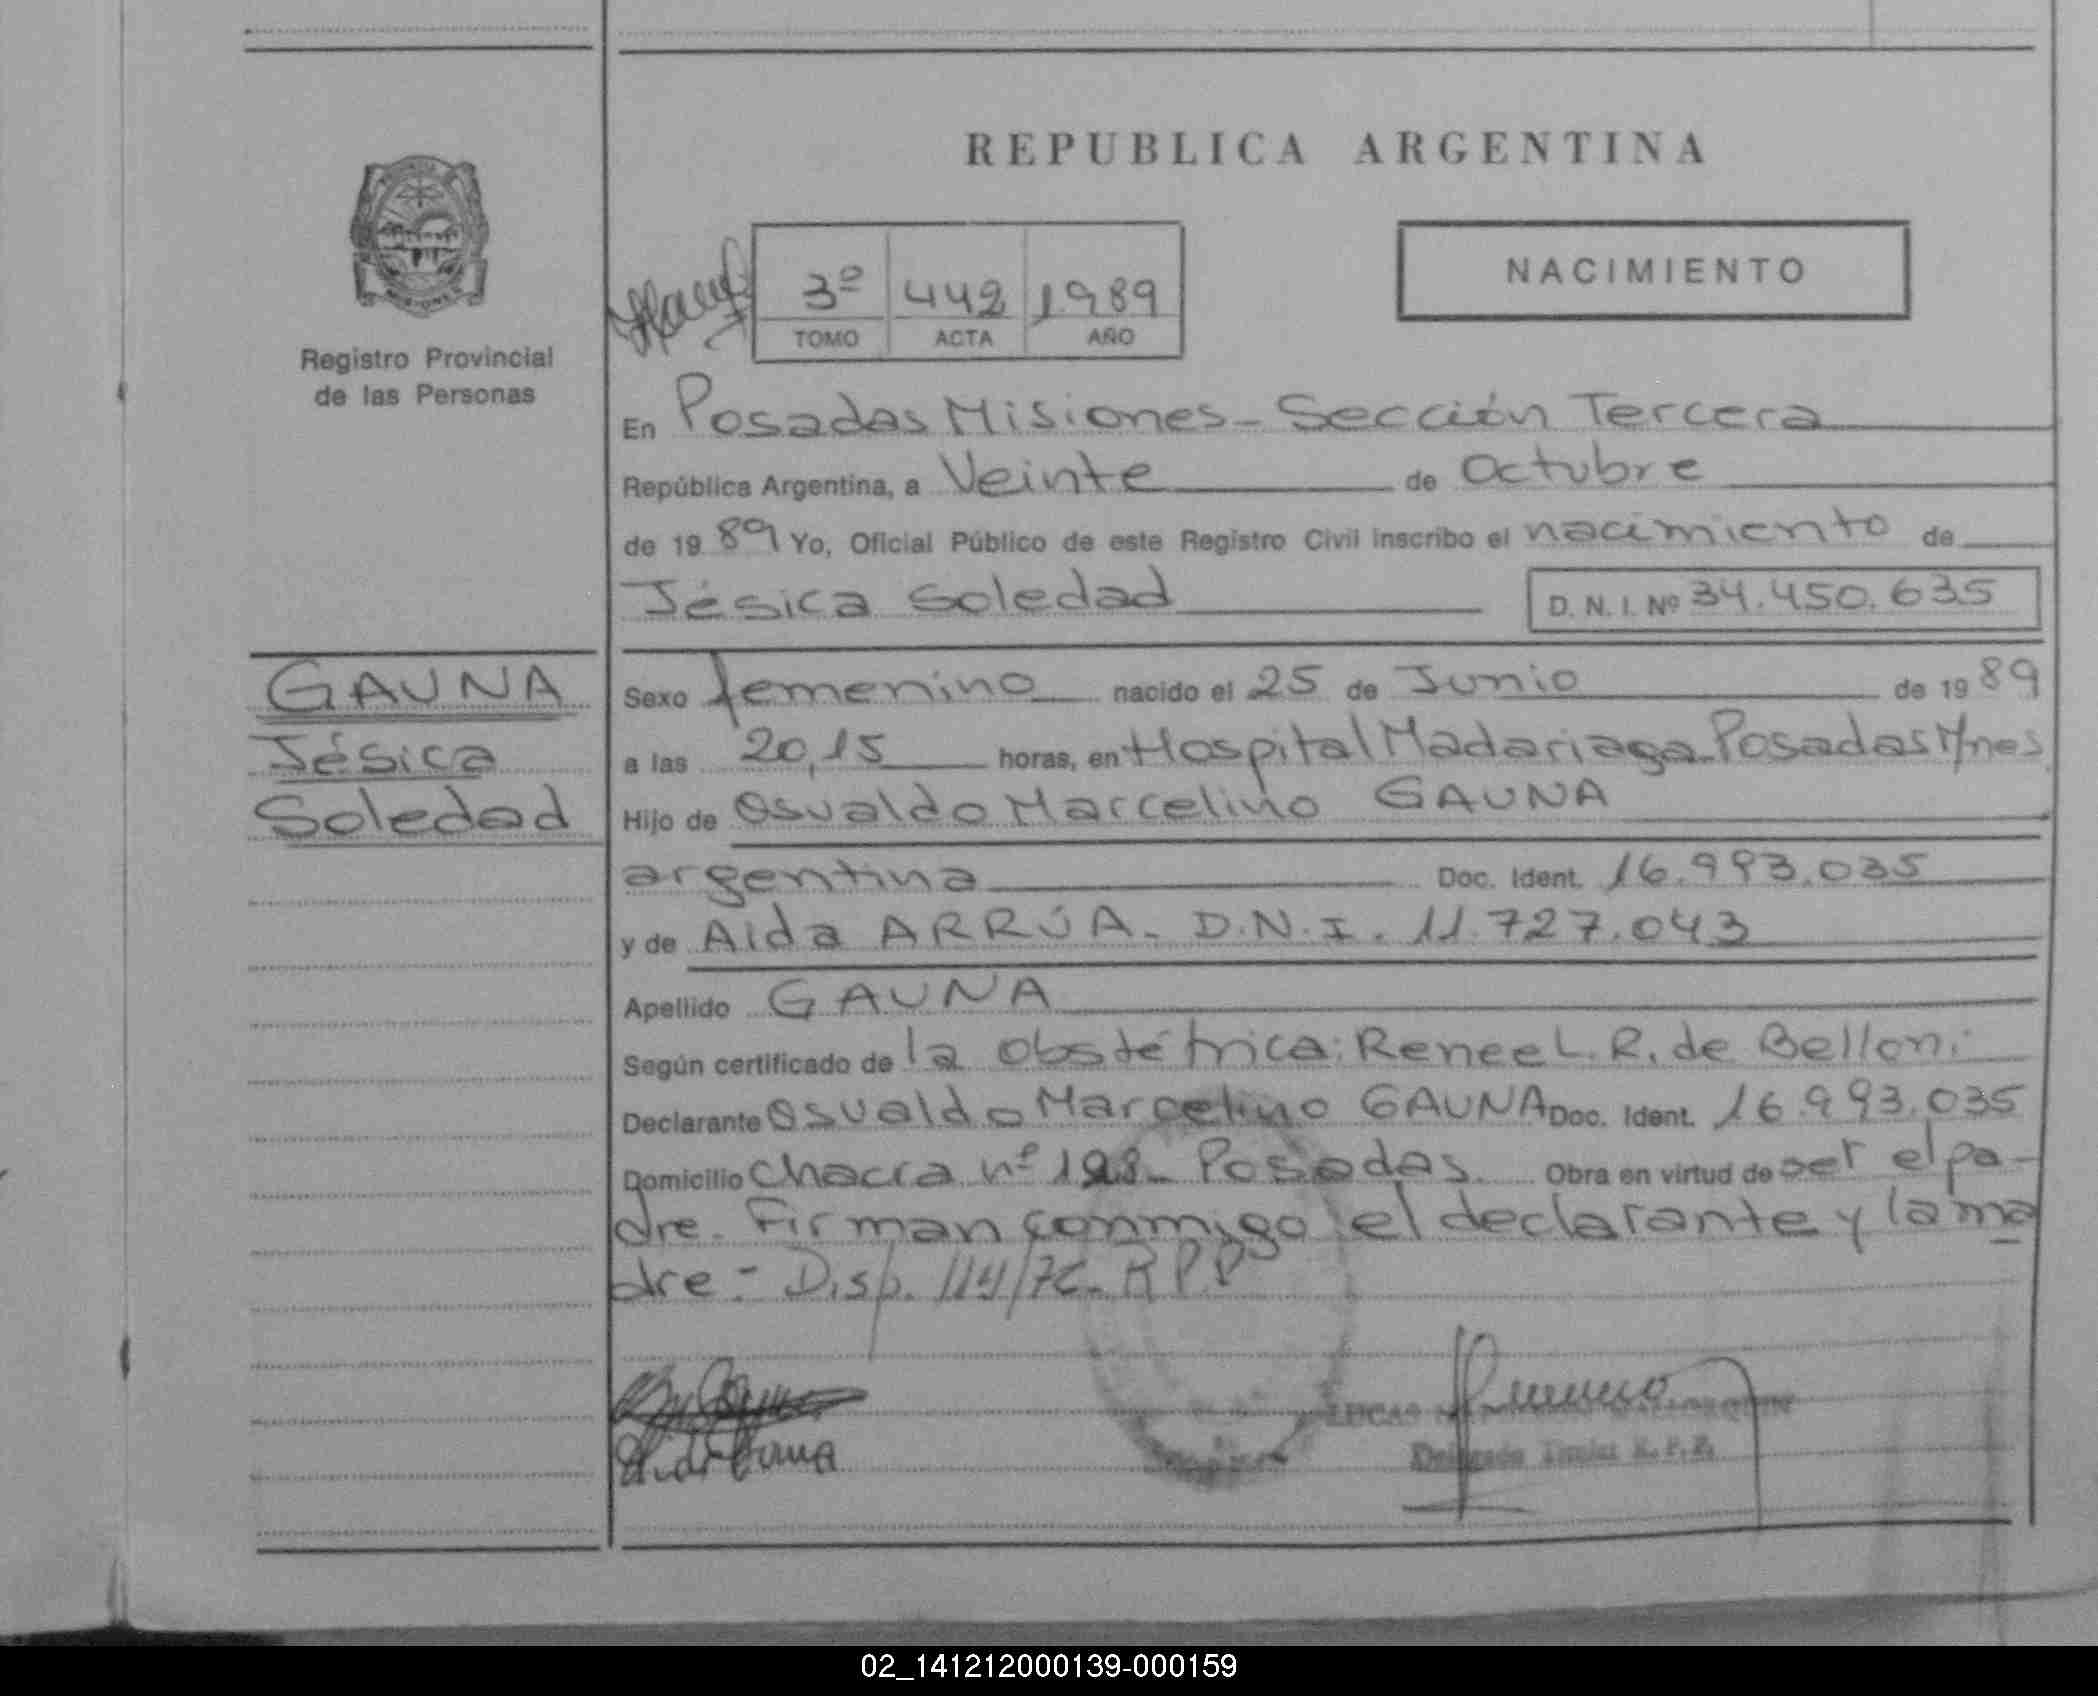 REPUBLICA ARGENTINA
NACIMIENTO
3º 442 1989
TOMO ACTA AÑO
Registro Provincial
de las Personas
En Posadas Misiones - Sección Tercera
República Argentina, a Veinte de Octubre
de 1989 Yo, Oficial Público de este Registro Civil inscribo el nacimiento de
Jésica Soledad D. N. I. Nº 34.450.635
GAUNA
Jésica
Soledad
Sexo femenino nacido el 25 de Junio de 1989
a las 20,15 horas, en Hospital Madariaga Posadas Mnes
Hijo de Osvaldo Marcelino GAUNA
argentina Doc. Ident. 16.993.035
y de Aida ARRÚA. D.N.I. 11.727.043
Apellido GAUNA
Según certificado de la obstétrica: Renee L. R. de Belloni
Declarante Osvaldo Marcelino GAUNA Doc. Ident. 16.993.035
Domicilio Chacra nº Posadas. Obra en virtud de ser el pa-
dre. Firman conmigo el declarante y la ma
dre = Disp. 114/76- R P P
LUCAS
Delegado Titular R. P. P.
02_141212000139-000159